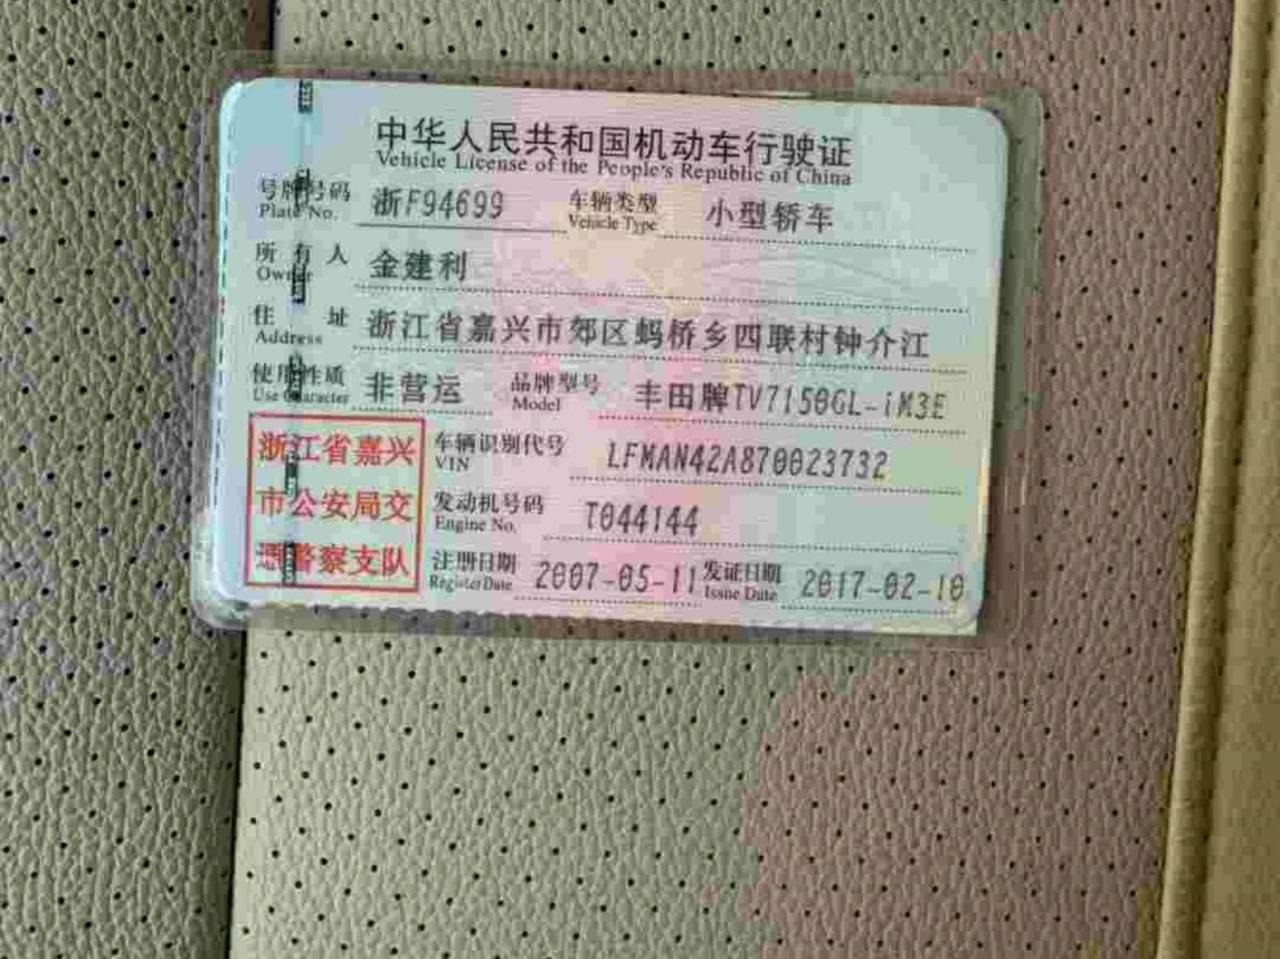 中华人民共和国机动车行驶证
Vehicle License of the People's Republic of China
号牌号码 浙F94699 车辆类型 小型轿车
Plate No. Vehicle Type
所有人 金建利
Owner
住址 浙江省嘉兴市郊区蚂桥乡四联村钟介江
Address
使用性质 非营运 品牌型号 丰田牌TV7150GL-iM3E
Use Character Model
浙江省嘉兴 车辆识别代号 LFMAN42A870023732
VIN
市公安局交 发动机号码 T044144
Engine No.
通警察支队 注册日期 2007-05-11 发证日期 2017-02-10
Register Date Issue Date